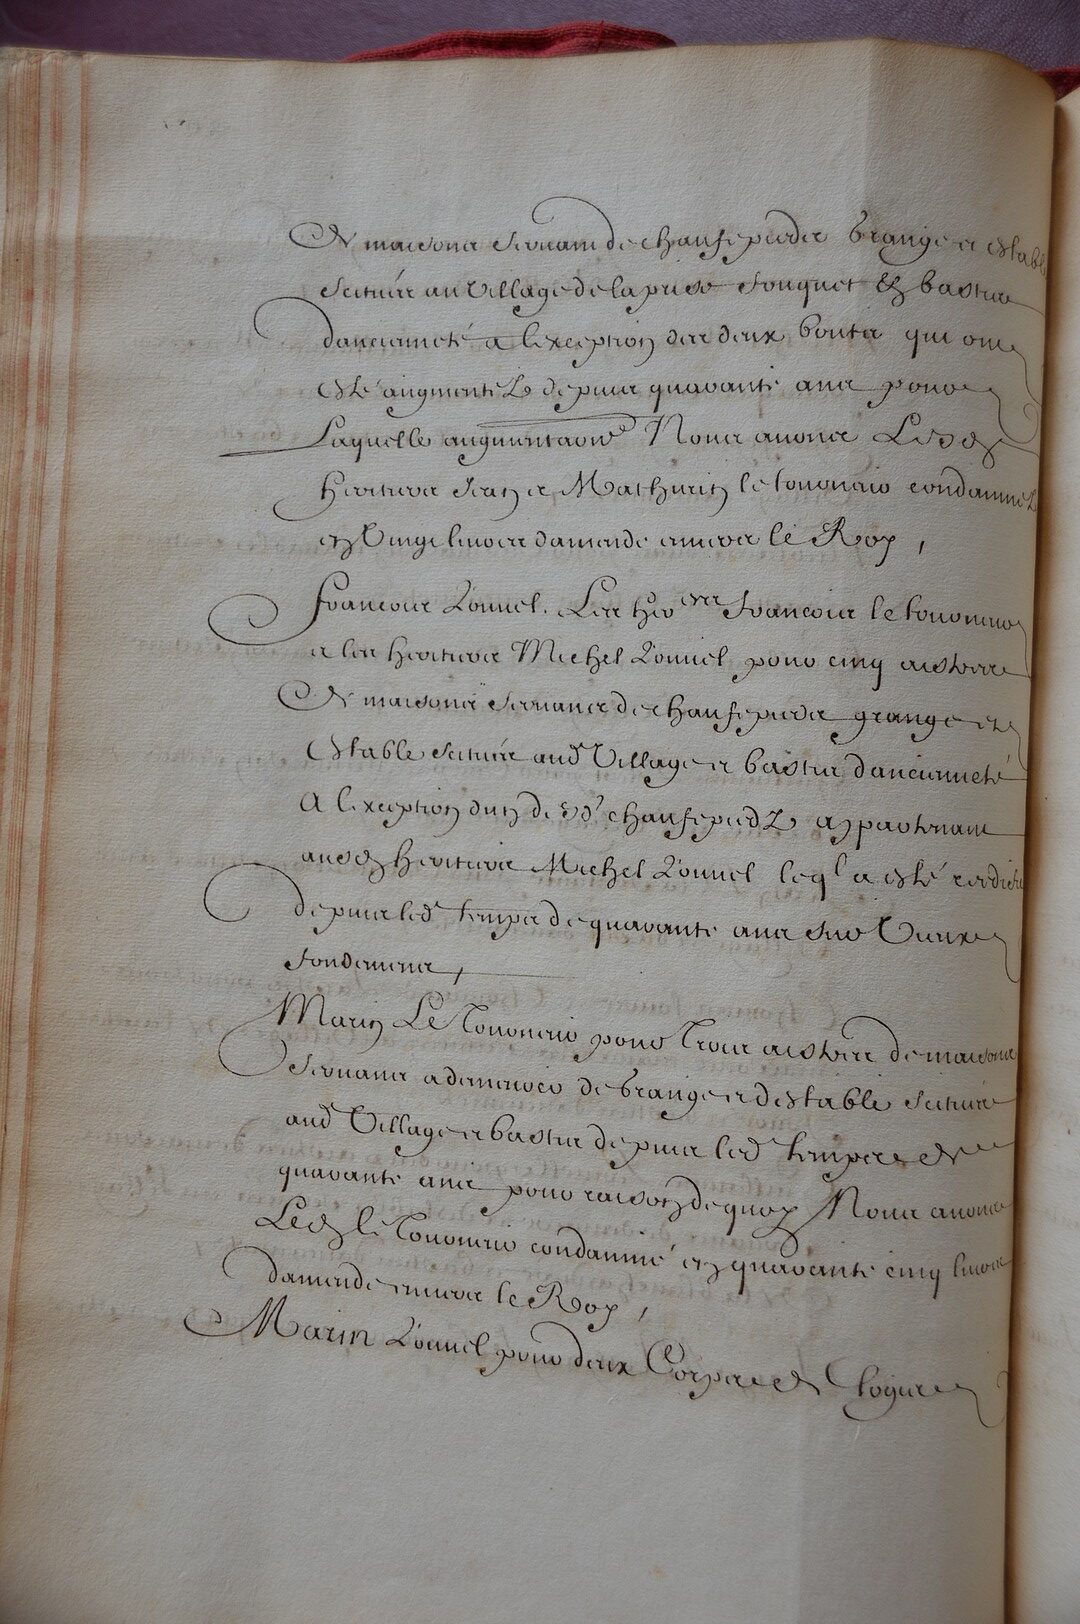 de maisons servant de chaufepieds grange et estable
scituées au village de la prise fouquet & basties
dancienneté a lexception des deux bouts qui ont
esté augmentez depuis quarante ans pour
Laquelle augmentaon Nous avons Lesd
heritiers Jean et Mathurin le condamnez
en Vingt livres damende envers le Roy,
francois Louvel. Les her francois le
et les heritiers Michel Louvel pour cinq aistres
de maisons servans de chaufepieds grange et
Estable scituée aud Village et basties dancienneté
A lexception dun desd chaufepiedz appartenant
ausd heritiers Michel Louvel leql a esté redifié
depuis led temps de quarante ans sur Vieux
fondemens,
Marin Le pour Trois aistres de maisons
servans a demeurer de grange et destable scituées
aud Village et basties depuis led temps de
quarante ans pour raison de quoy Nous avons
Led le condamné en quarante cinq livres
damende envers le Roy,
Marin Louvel pour deux Corps de Logis